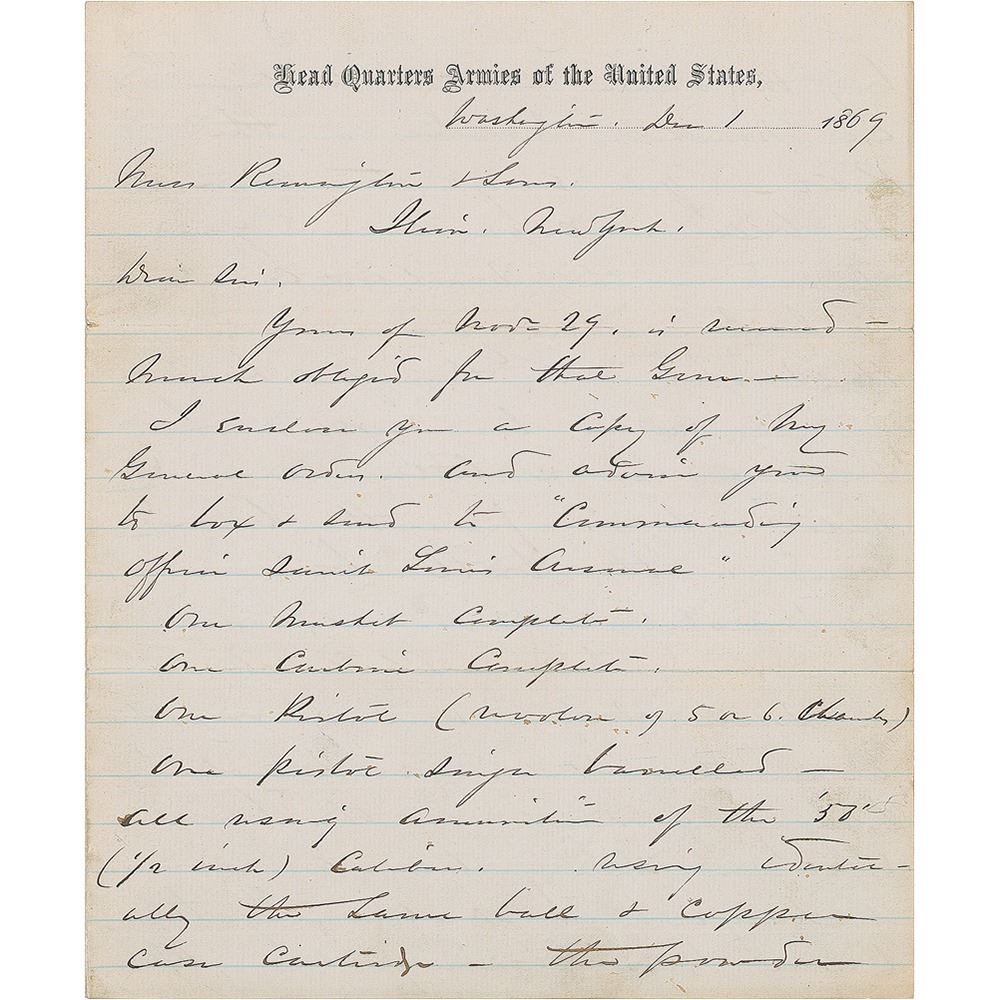 Head Quarters Armies of the United States,
Washington. Dec 1 1869
Mess Remington & Sons.
Ilion. New York.
Dear Sirs.
Yours of Nov 29. is received —
Much obliged for that Gun —
I enclose you a Copy of my
General Orders. and advise you
to box & send to "Commanding
Officer Saint Louis Arsenal"
One Musket Complete.
One Carbine Complete.
One Pistol (revolver of 5 or 6. Chambers)
One pistol single barrelled —
all using ammunition of the '50'
(1/2 inch) Calibre. using identic-
ally the same ball & copper
case cartridge — the powder